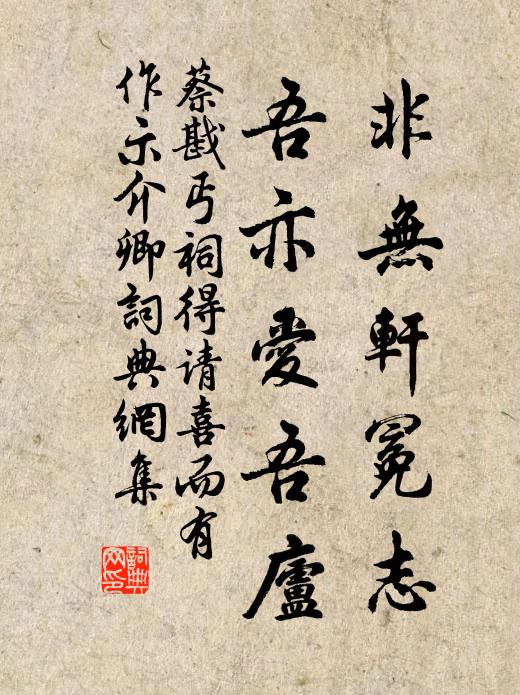 非無軒冕志
吾亦愛吾廬
蔡戡丐祠得请喜而有
作示介卿詞典網集
詞典網印